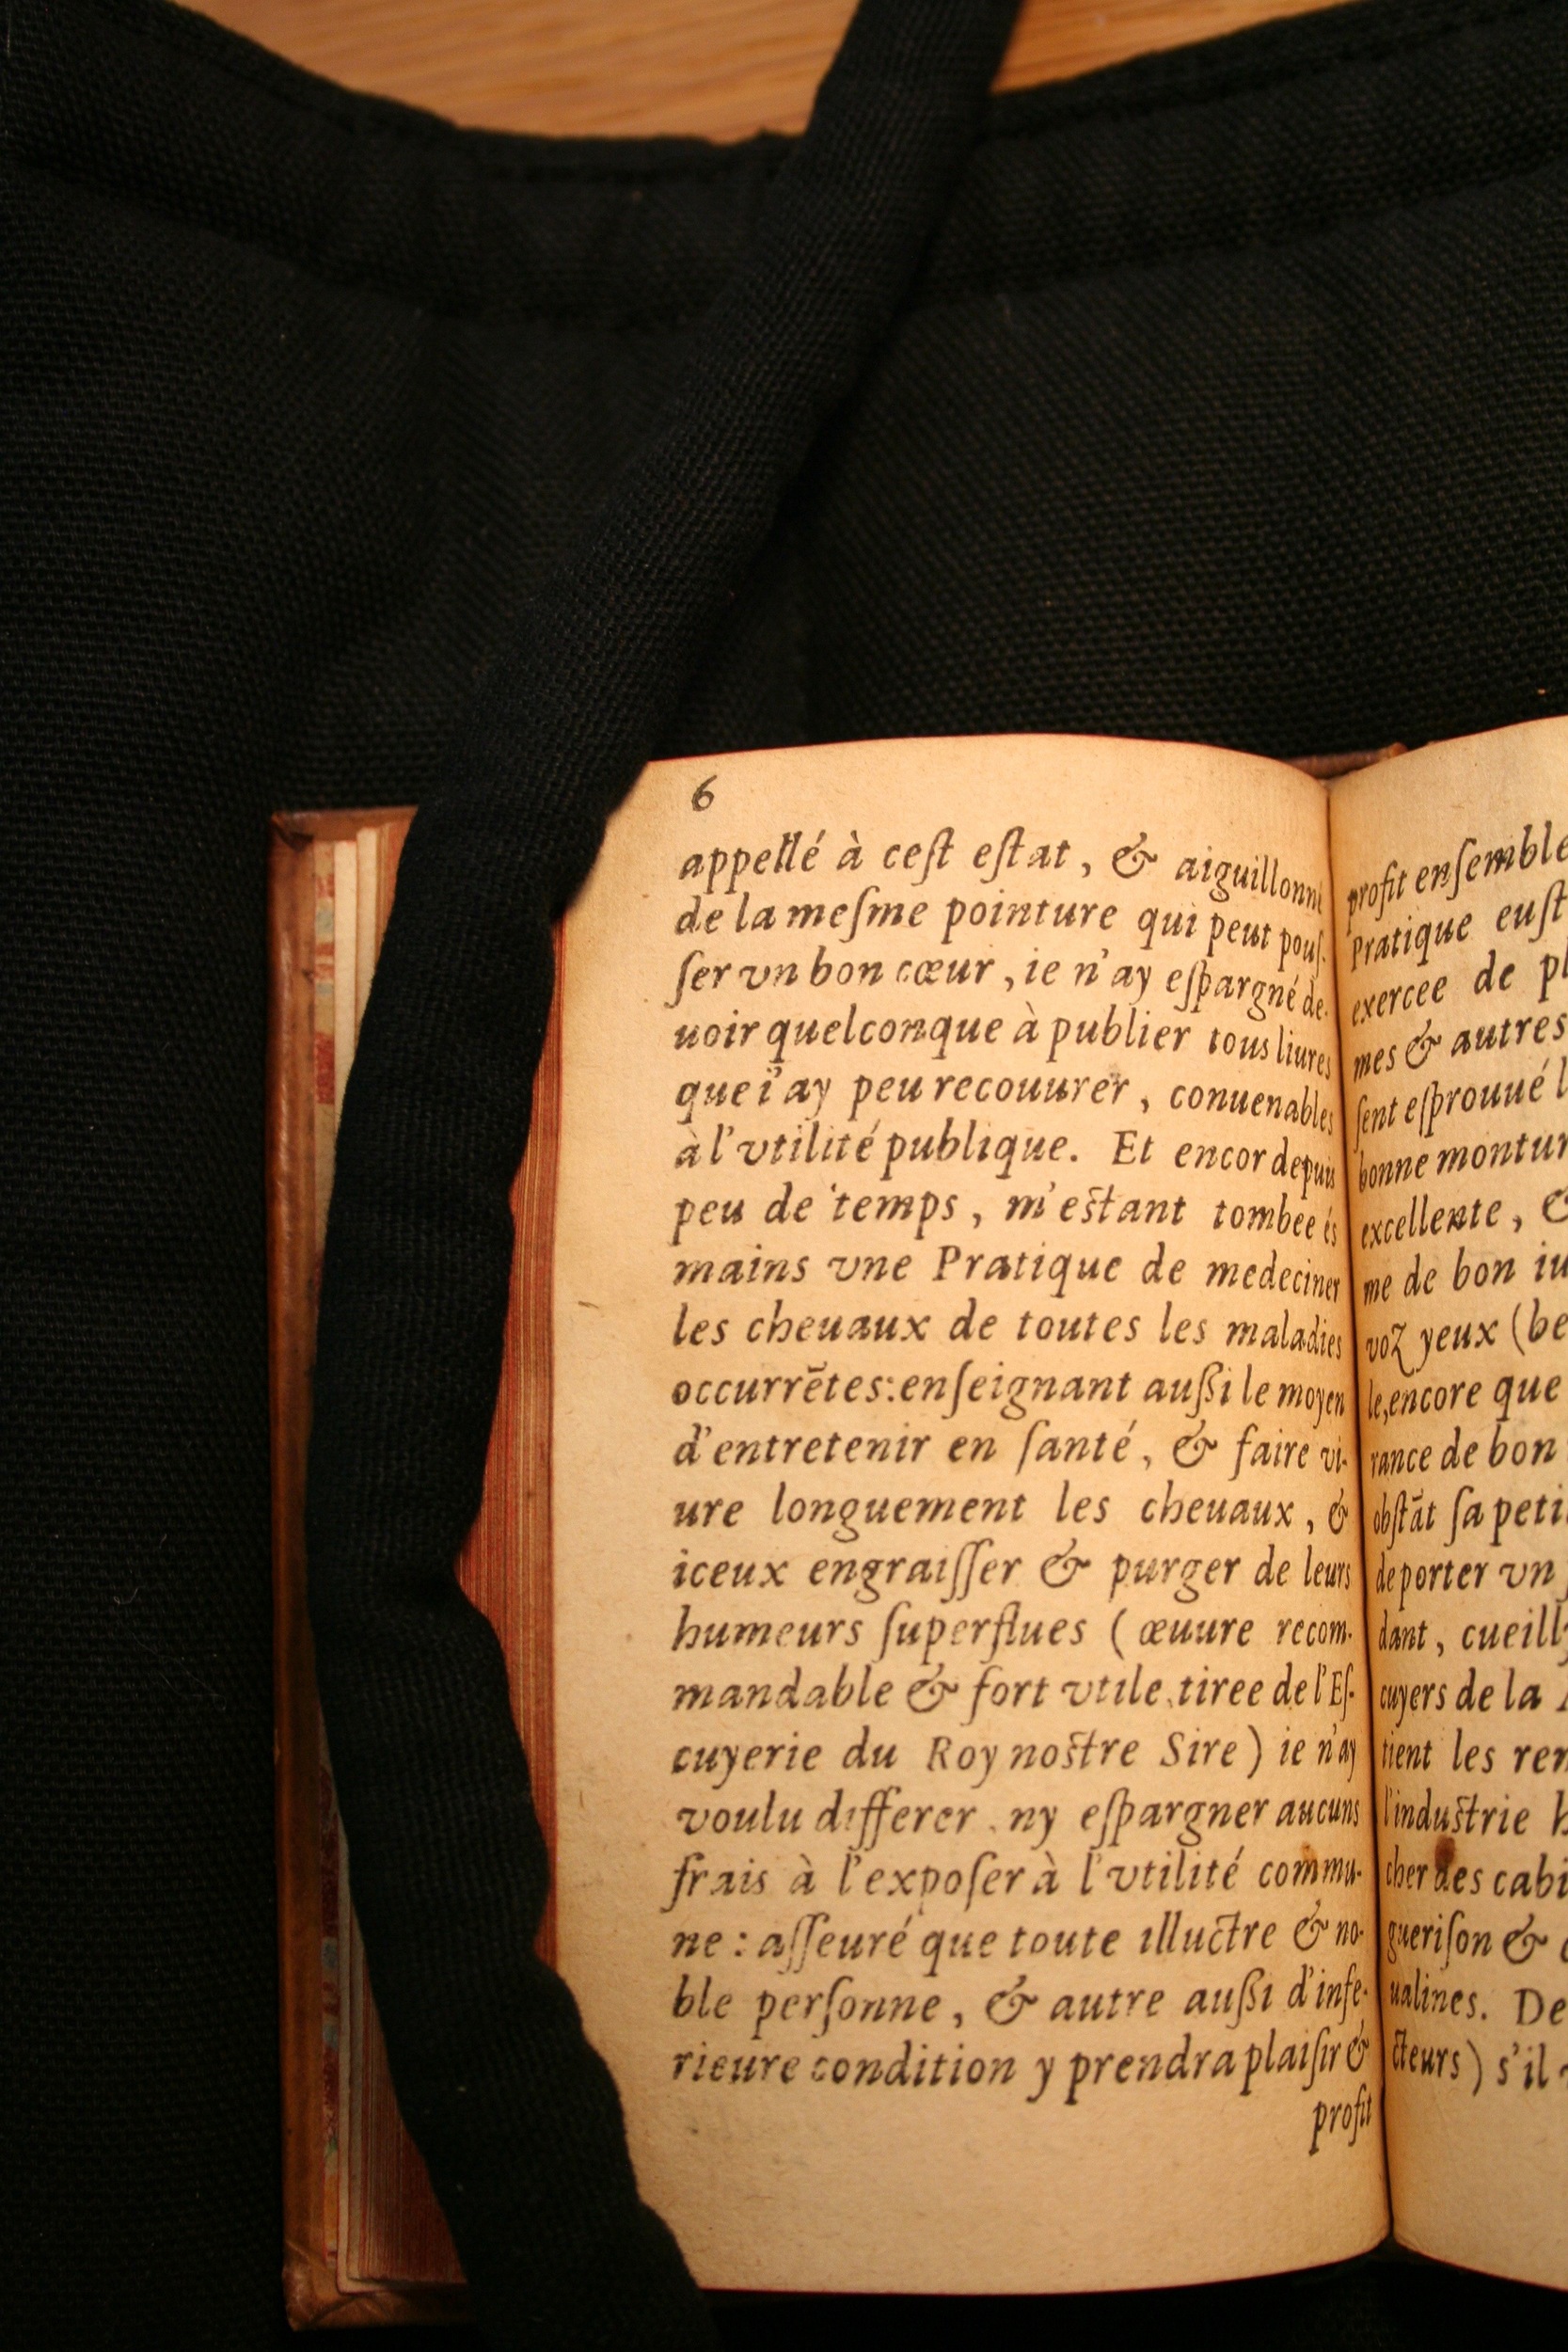 6
appellé à ceſt eſtat, & aiguillonné
de la meſme pointure qui peut pouſ-
ſer vn bon cœur, ie n'ay eſpargné de-
uoir quelconque à publier tous liures
que i'ay peu recouurer, conuenables
à l'vtilité publique. Et encor depuis
peu de temps, m'eſtant tombee és
mains vne Pratique de medeciner
les cheuaux de toutes les maladies
occurrētes: enſeignant auſſi le moyen
d'entretenir en ſanté, & faire vi-
ure longuement les cheuaux, &
iceux engraiſſer & purger de leurs
humeurs ſuperflues (œuure recom-
mandable & fort vtile, tiree de l'Eſ-
cuyerie du Roy noſtre Sire) ie n'ay
voulu differer, ny eſpargner aucuns
frais à l'expoſer à l'vtilité commu-
ne: aſſeuré que toute illuctre & no-
ble perſonne, & autre auſſi d'infe-
rieure condition y prendra plaiſir &
profit
profit enſemble
pratique euſt
exercee de pl
mes & autres
ſent eſprouué l
bonne montur
excellente, &
me de bon iu
voz yeux (be
le, encore que
rance de bon
obſtāt ſa peti
de porter vn
dant, cueill
cuyers de la
tient les rem
l'induſtrie h
cher des cabi
gueriſon &
ualines. De
cteurs) s'il